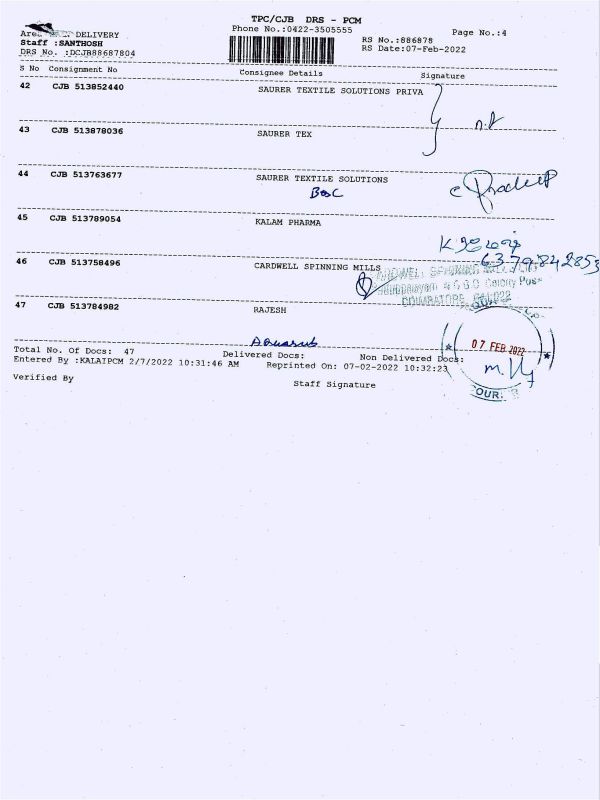 TPC/CJB DRS - PCM
Phone No.:0422-3505555
Page No.:4
DELIVERY
RS No.:886878
Staff :SANTHOSH
RS Date:07-Feb-2022
DRS No. :DCJB88687804
S No Consignment No Consignee Details Signature
42 CJB 513852440 SAURER TEXTILE SOLUTIONS PRIVA
43 CJB 513878036 SAURER TEX
44 CJB 513763677 SAURER TEXTILE SOLUTIONS
45 CJB 513789054 KALAM PHARMA
6379842853
46 CJB 513758496 CARDWELL SPINNING MILLS
Colony Post
COIMBATORE
47 CJB 513784982 RAJESH
07 FEB 2022
Total No. Of Docs: 47 Delivered Docs: Non Delivered Docs:
Entered By :KALAIPCM 2/7/2022 10:31:46 AM Reprinted On: 07-02-2022 10:32:23
Verified By Staff Signature